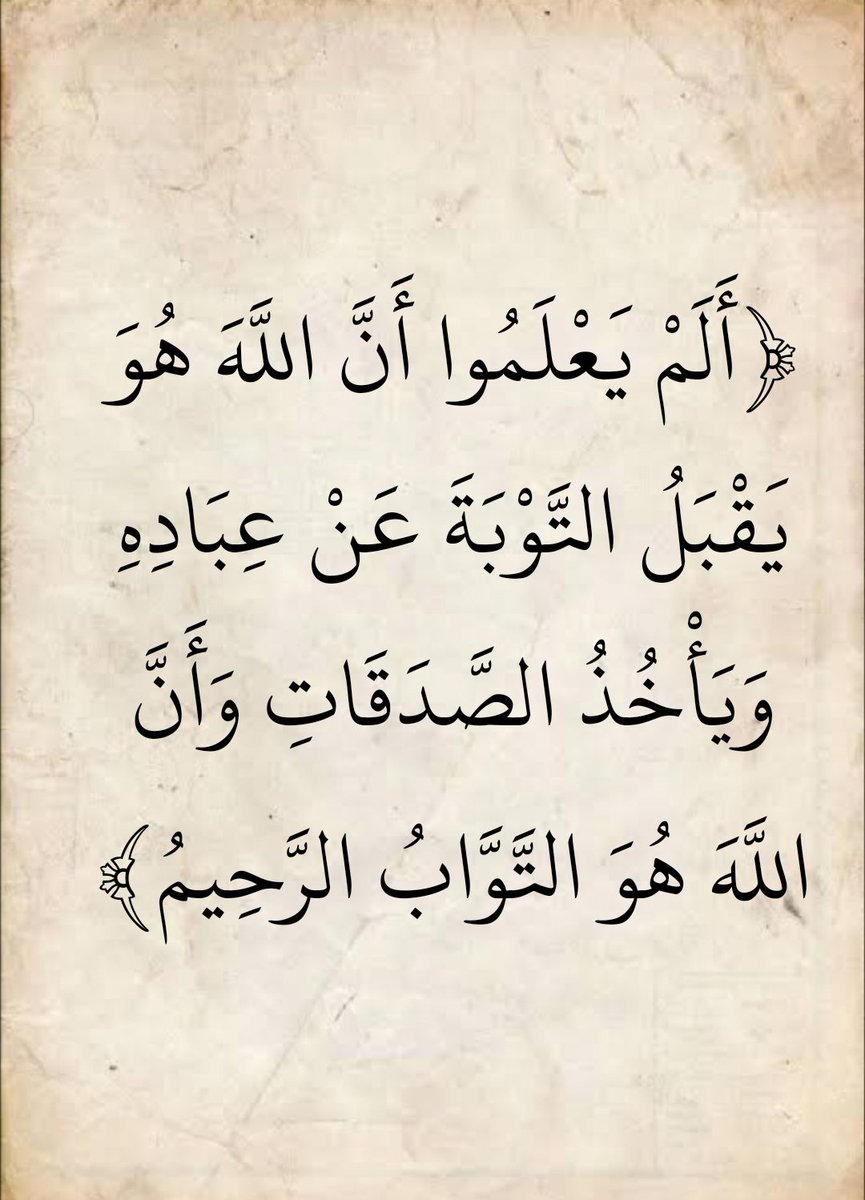 ﴿أَلَمْ يَعْلَمُوا أَنَّ اللَّهَ هُوَ
يَقْبَلُ التَّوْبَةَ عَنْ عِبَادِهِ
وَيَأْخُذُ الصَّدَقَاتِ وَأَنَّ
اللَّهَ هُوَ التَّوَّابُ الرَّحِيمُ﴾